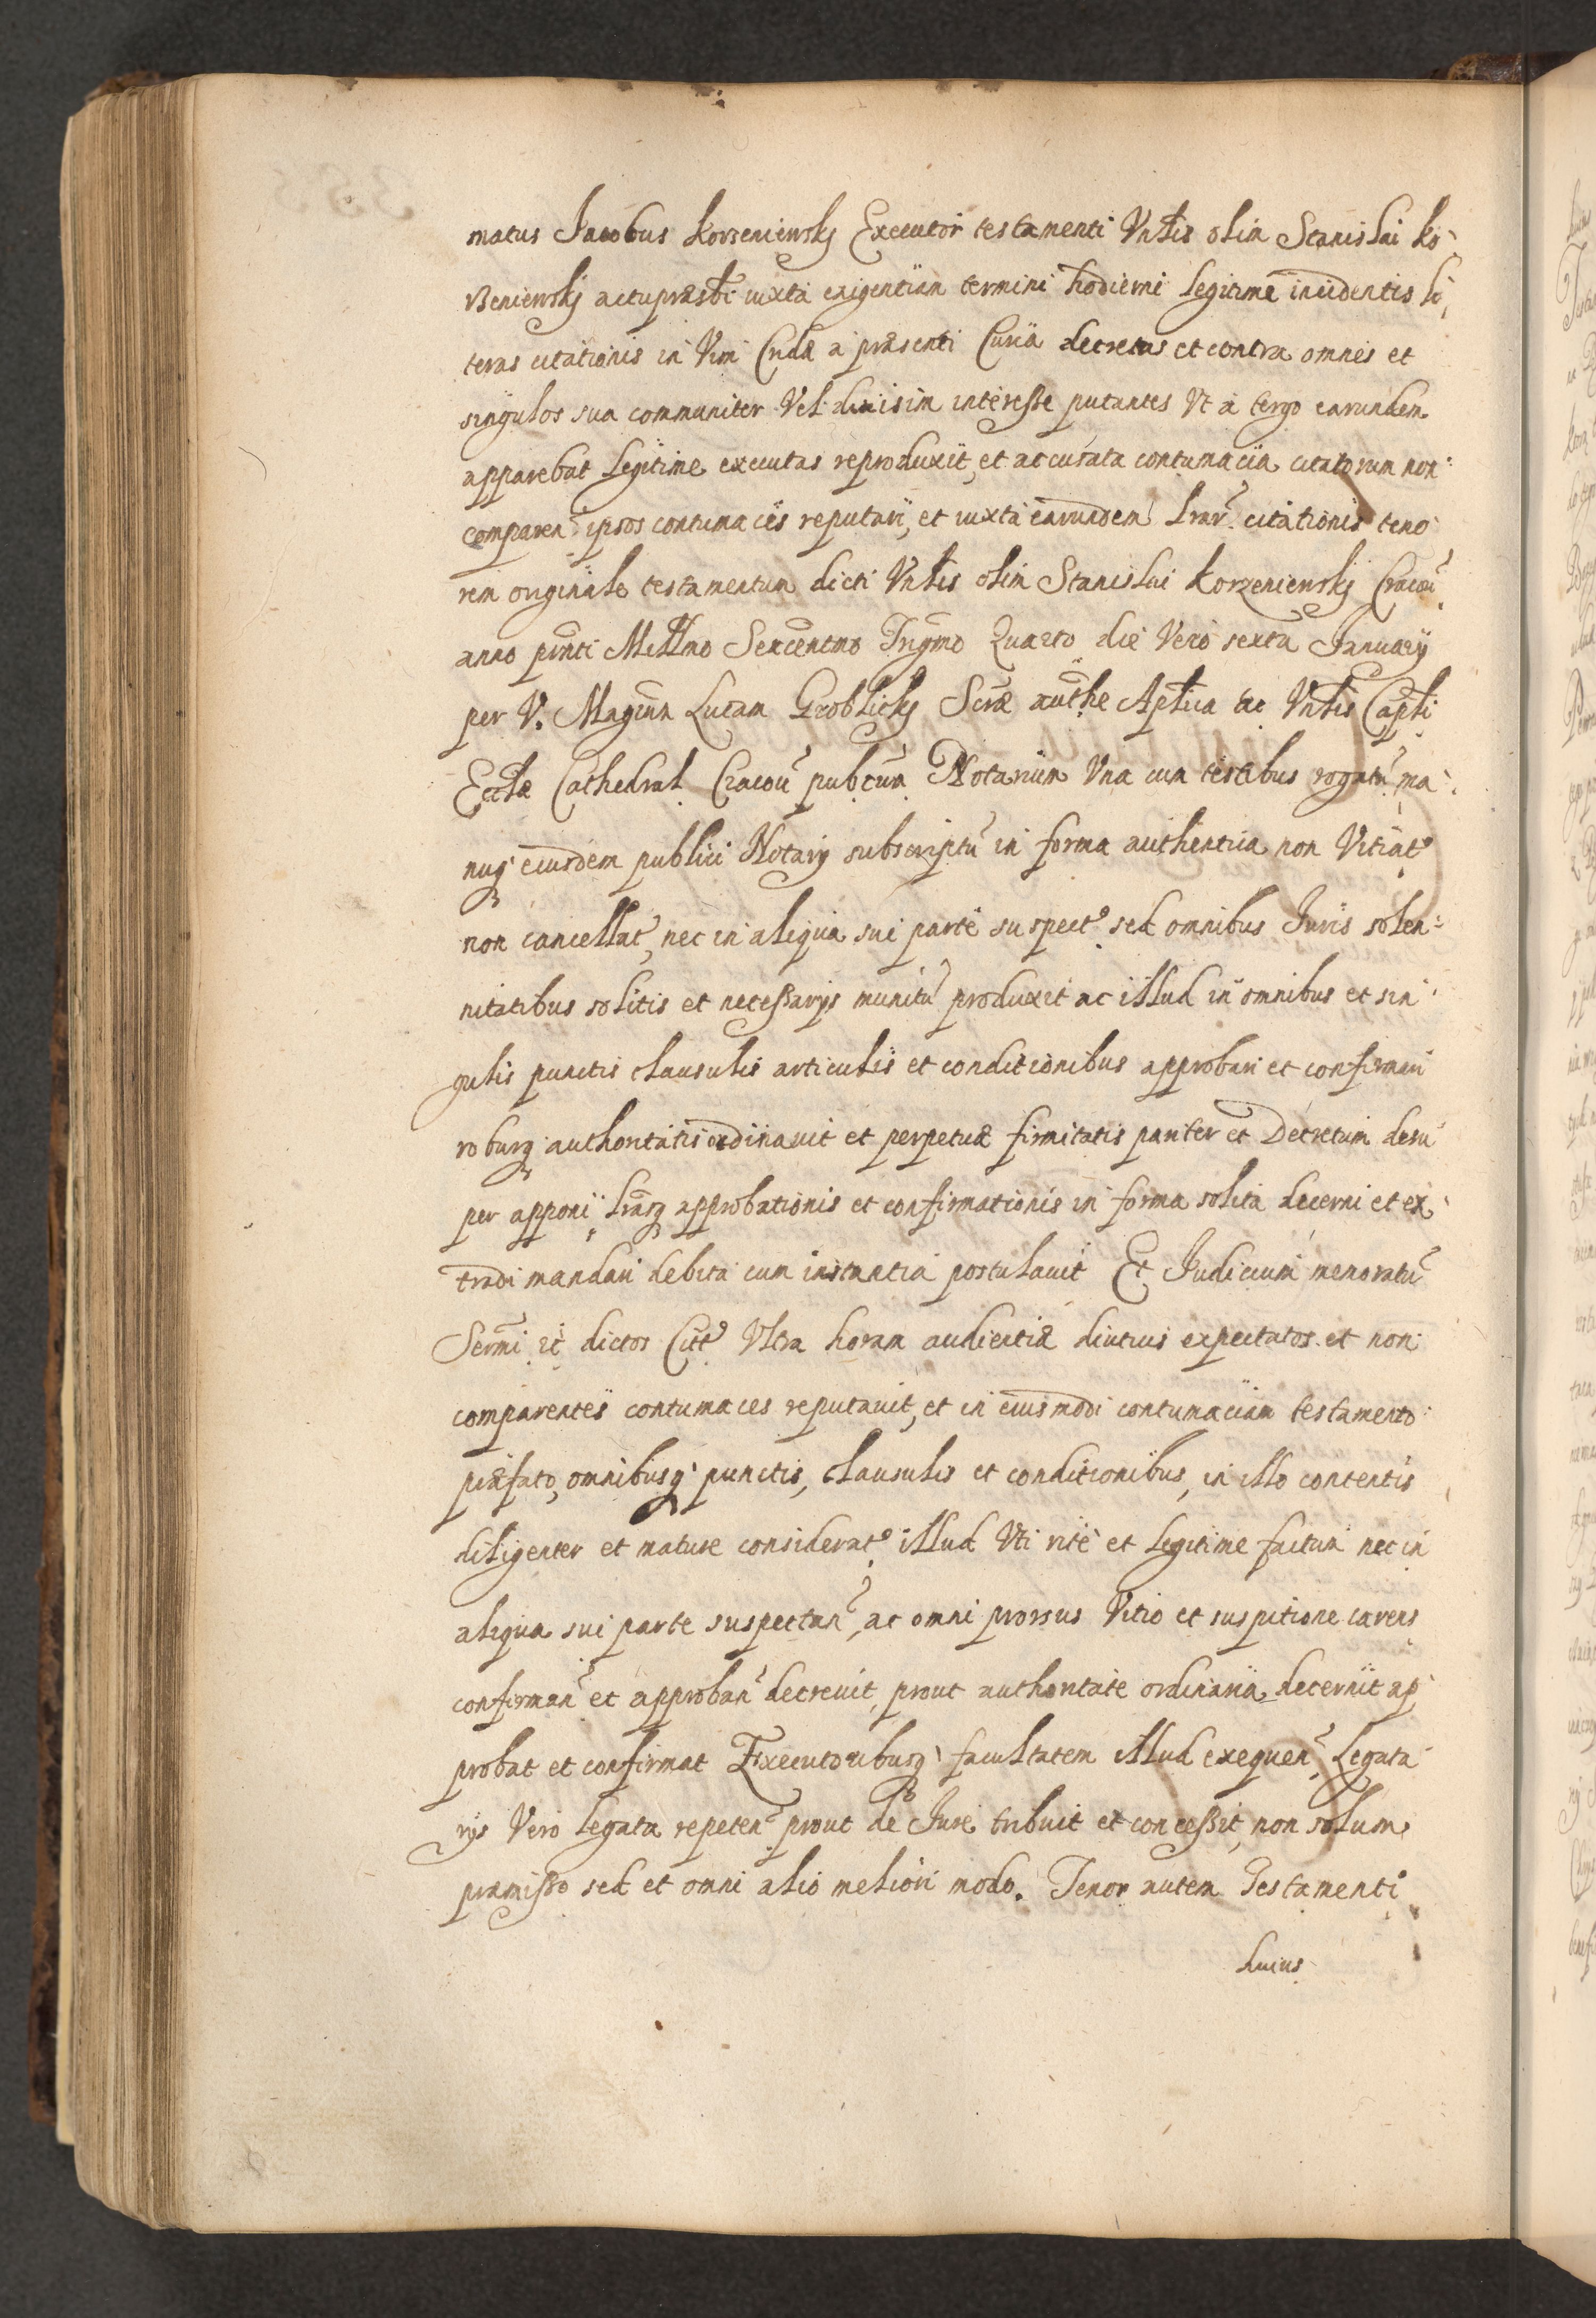 matus Jacobus Korzeniewskj Executor testamenti Vnlis olim Stanislai Ko-
rzeniewskj actu præsbr iuxta exigentiam termini hodierni legitime incidentis li,
teras citationis in Vim Cridæ a præsenti Curia decretas et contra omnes et
singulos sua communiter Vel diuisim interesse putantes Vt a tergo earundem
apparebat legitime executas reproduxit, et accusata contumacia citatorum non-
comparen ipsos contumaces reputari, et iuxta earundem lrar citationis teno
rem originale testamentum dicti Vnlis olim Stanislai Korzeniewskj Cracou
anno prnti Millmo Sexcentmo Trigmo Quarto die Vero sexta Januarij
per V. Magrum Lucam Groblickj Scræ authe Aplica ac Vnlis Capli
Ecclæ Cathedral Cracou pubcum Notarium Vna cum testibus rogatu ma-
nuq eiusdem publici Notarij subscriptu in forma authentica non Vitiat
non cancellat, nec in aliqua sui parte suspect sed omnibus Juris solen-
nitatibus solitis et necessarijs munitu produxit ac illud in omnibus et sin
gulis punctis clausulis articulis et conditionibus approbari et confirmari
roburq authoritatis ordinauit et perpetuæ firmitatis pariter et Decretum desu
per apponi lrasq approbationis et confirmationis in forma solita decerni et ex
tradi mandari debita cum instantia postulauit Et Judicium memoratu
Sermi et dictos Citt Vltra horam audientiæ diutius expectatos et non
comparentes contumaces reputauit, et in eiusmodi contumaciam testamento
præfato, omnibusq punctis, clausulis et conditionibus, in illo contentis
diligenter et mature considerat illud Vti rite et legitime factum nec in
aliqua sui parte suspectum, ac omni prorsus Vitio et suspitione carens
confirman et approban decreuit, prout authoritate ordinaria decernit ap
probat et confirmat Executoribusq facultatem illud exequen, Legata
rijs Vero legata repeten prout de Jure tribuit et concessit, non solum
præmisso sed et omni alio meliori modo. Tenor autem Testamenti
huius